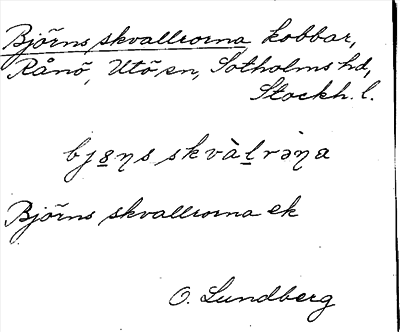 Björns skvallrorna kobbar,
Rånö, Utö sn, Sotholms hd,
Stockh. l.
bjo̲ŋs skvàl̲rəŋa
Björns skvallrorna ek
O. Lundberg